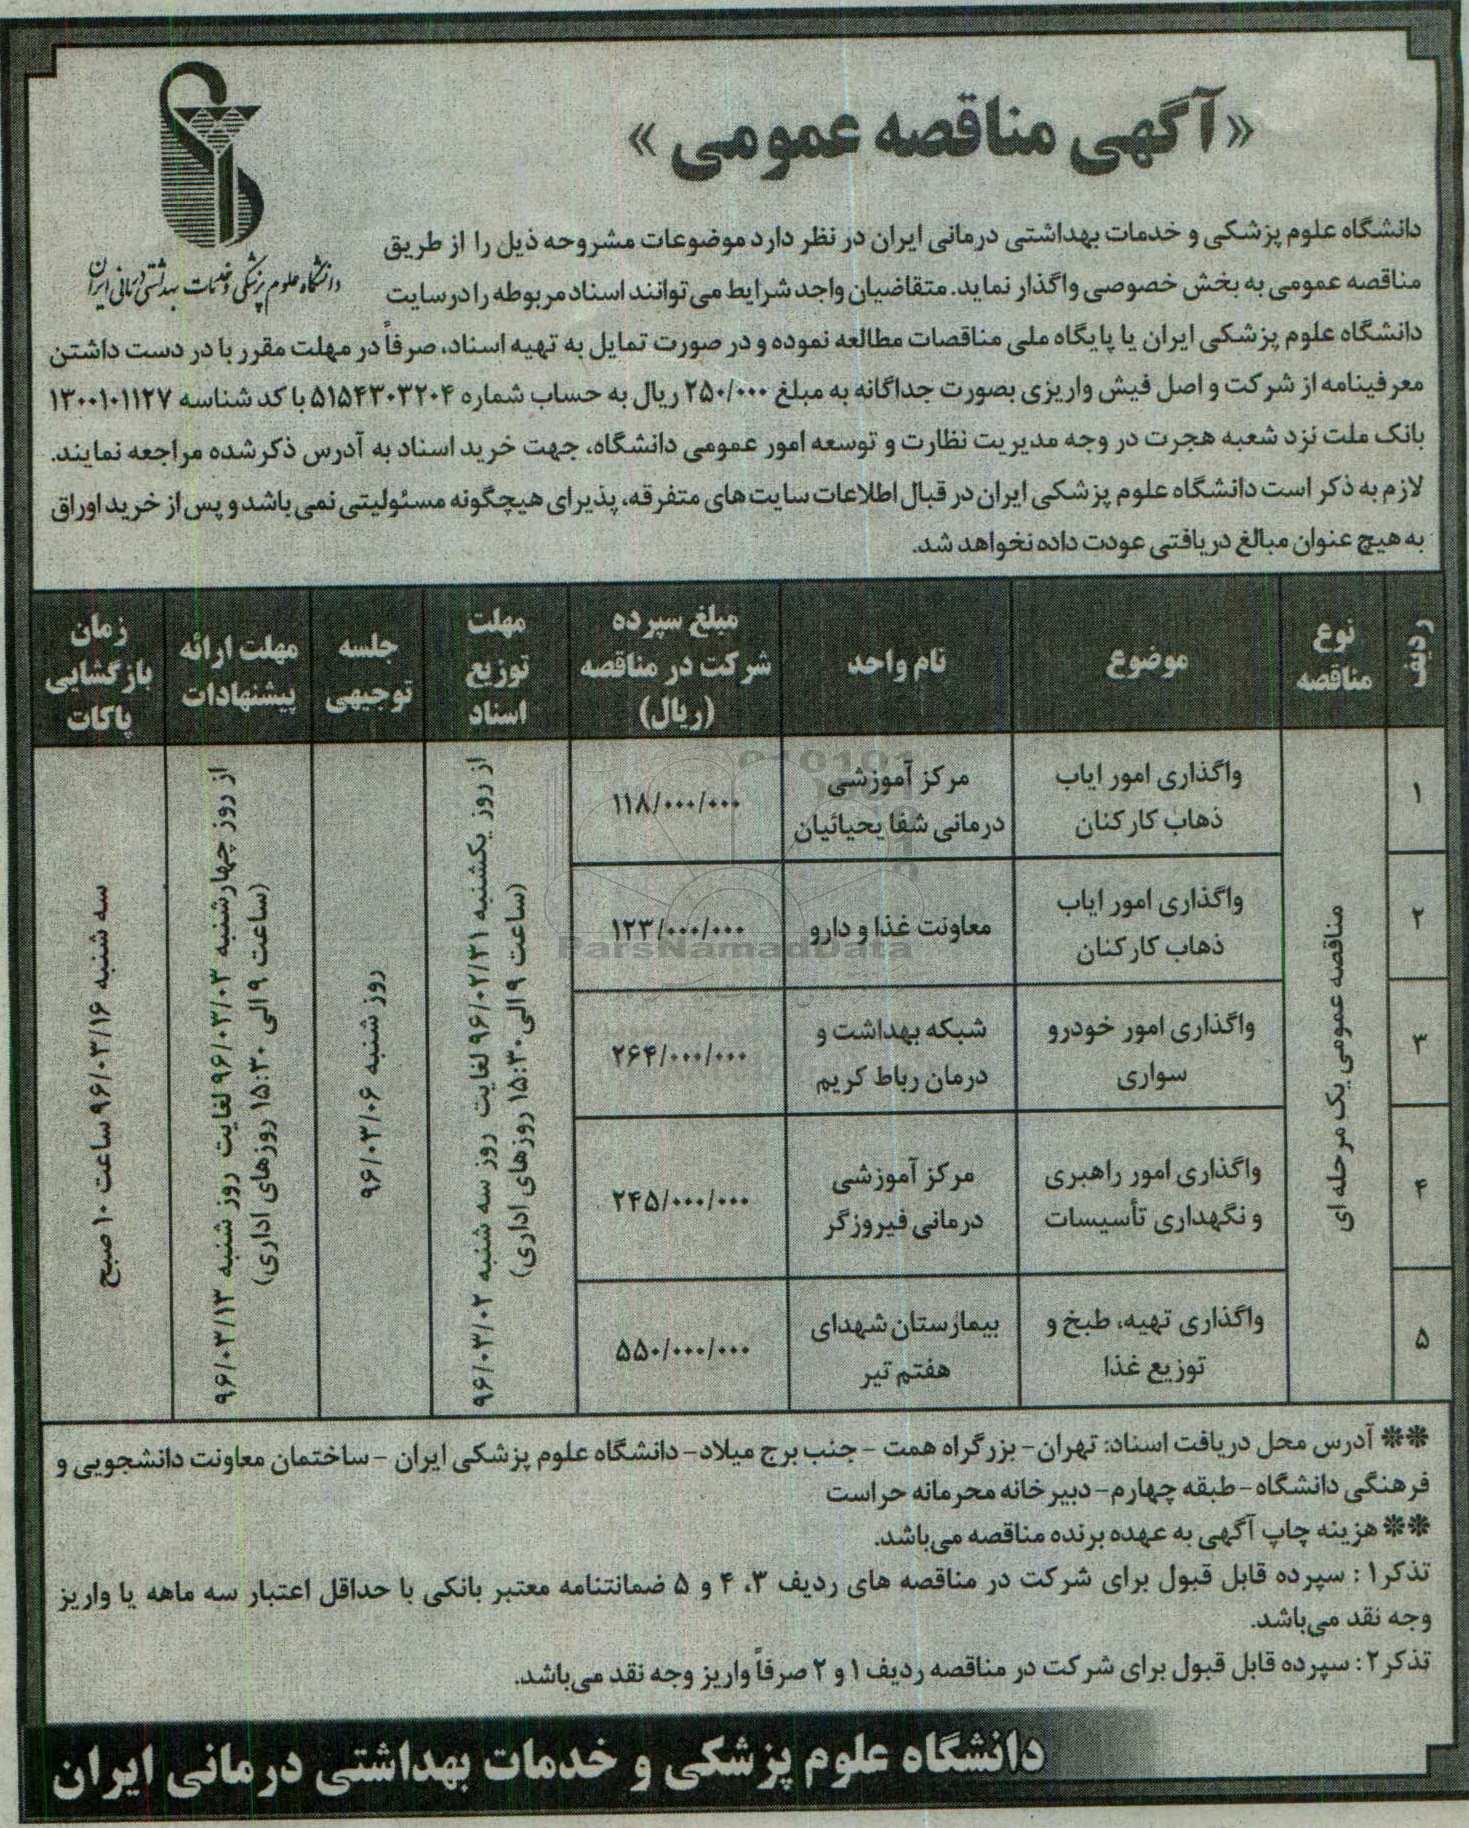 «آگهی مناقصه عمومی»
دانشگاه علوم پزشکی و خدمات بهداشتی درمانی ایران
دانشگاه علوم پزشکی و خدمات بهداشتی درمانی ایران در نظر دارد موضوعات مشروحه ذیل را از طریق
مناقصه عمومی به بخش خصوصی واگذار نماید. متقاضیان واجد شرایط می توانند اسناد مربوطه را در سایت
دانشگاه علوم پزشکی ایران یا پایگاه ملی مناقصات مطالعه نموده و در صورت تمایل به تهیه اسناد، صرفاً در مهلت مقرر با در دست داشتن
معرفینامه از شرکت و اصل فیش واریزی بصورت جداگانه به مبلغ ۲۵۰/۰۰۰ ریال به حساب شماره ۵۱۵۴۳۰۳۲۰۴ با کد شناسه ۱۳۰۰۱۰۱۱۲۷
بانک ملت نزد شعبه هجرت در وجه مدیریت نظارت و توسعه امور عمومی دانشگاه، جهت خرید اسناد به آدرس ذکر شده مراجعه نمایند.
لازم به ذکر است دانشگاه علوم پزشکی ایران در قبال اطلاعات سایت های متفرقه، پذیرای هیچگونه مسئولیتی نمی باشد و پس از خرید اوراق
به هیچ عنوان مبالغ دریافتی عودت داده نخواهد شد.
ردیف
نوع
مناقصه
موضوع
نام واحد
مبلغ سپرده
شرکت در مناقصه
(ریال)
مهلت
توزیع
اسناد
جلسه
توجیهی
مهلت ارائه
پیشنهادات
زمان
بازگشایی
پاکات
۱
واگذاری امور ایاب
ذهاب کارکنان
مرکز آموزشی
درمانی شفا یحیائیان
۱۱۸/۰۰۰/۰۰۰
۲
واگذاری امور ایاب
ذهاب کارکنان
معاونت غذا و دارو
۱۲۳/۰۰۰/۰۰۰
۳
واگذاری امور خودرو
سواری
شبکه بهداشت و
درمان رباط کریم
۲۶۴/۰۰۰/۰۰۰
۴
واگذاری امور راهبری
و نگهداری تأسیسات
مرکز آموزشی
درمانی فیروزگر
۲۴۵/۰۰۰/۰۰۰
۵
واگذاری تهیه، طبخ و
توزیع غذا
بیمارستان شهدای
هفتم تیر
۵۵۰/۰۰۰/۰۰۰
مناقصه عمومی یک مرحله ای
از روز یکشنبه ۹۶/۰۲/۳۱ لغایت روز سه شنبه ۹۶/۰۳/۰۲
(ساعت ۹ الی ۱۵:۳۰ روزهای اداری)
روز شنبه ۹۶/۰۳/۰۶
از روز چهارشنبه ۹۶/۰۳/۰۳ لغایت روز شنبه ۹۶/۰۳/۱۳
(ساعت ۹ الی ۱۵:۳۰ روزهای اداری)
سه شنبه ۹۶/۰۳/۱۶ ساعت ۱۰ صبح
ParsNamadData
** آدرس محل دریافت اسناد: تهران- بزرگراه همت - جنب برج میلاد- دانشگاه علوم پزشکی ایران - ساختمان معاونت دانشجویی و
فرهنگی دانشگاه- طبقه چهارم- دبیرخانه محرمانه حراست
** هزینه چاپ آگهی به عهده برنده مناقصه می‌باشد.
تذکر۱: سپرده قابل قبول برای شرکت در مناقصه های ردیف ۳، ۴ و ۵ ضمانتنامه معتبر بانکی با حداقل اعتبار سه ماهه یا واریز
وجه نقد می‌باشد.
تذکر۲: سپرده قابل قبول برای شرکت در مناقصه ردیف ۱ و ۲ صرفاً واریز وجه نقد می‌باشد.
دانشگاه علوم پزشکی و خدمات بهداشتی درمانی ایران